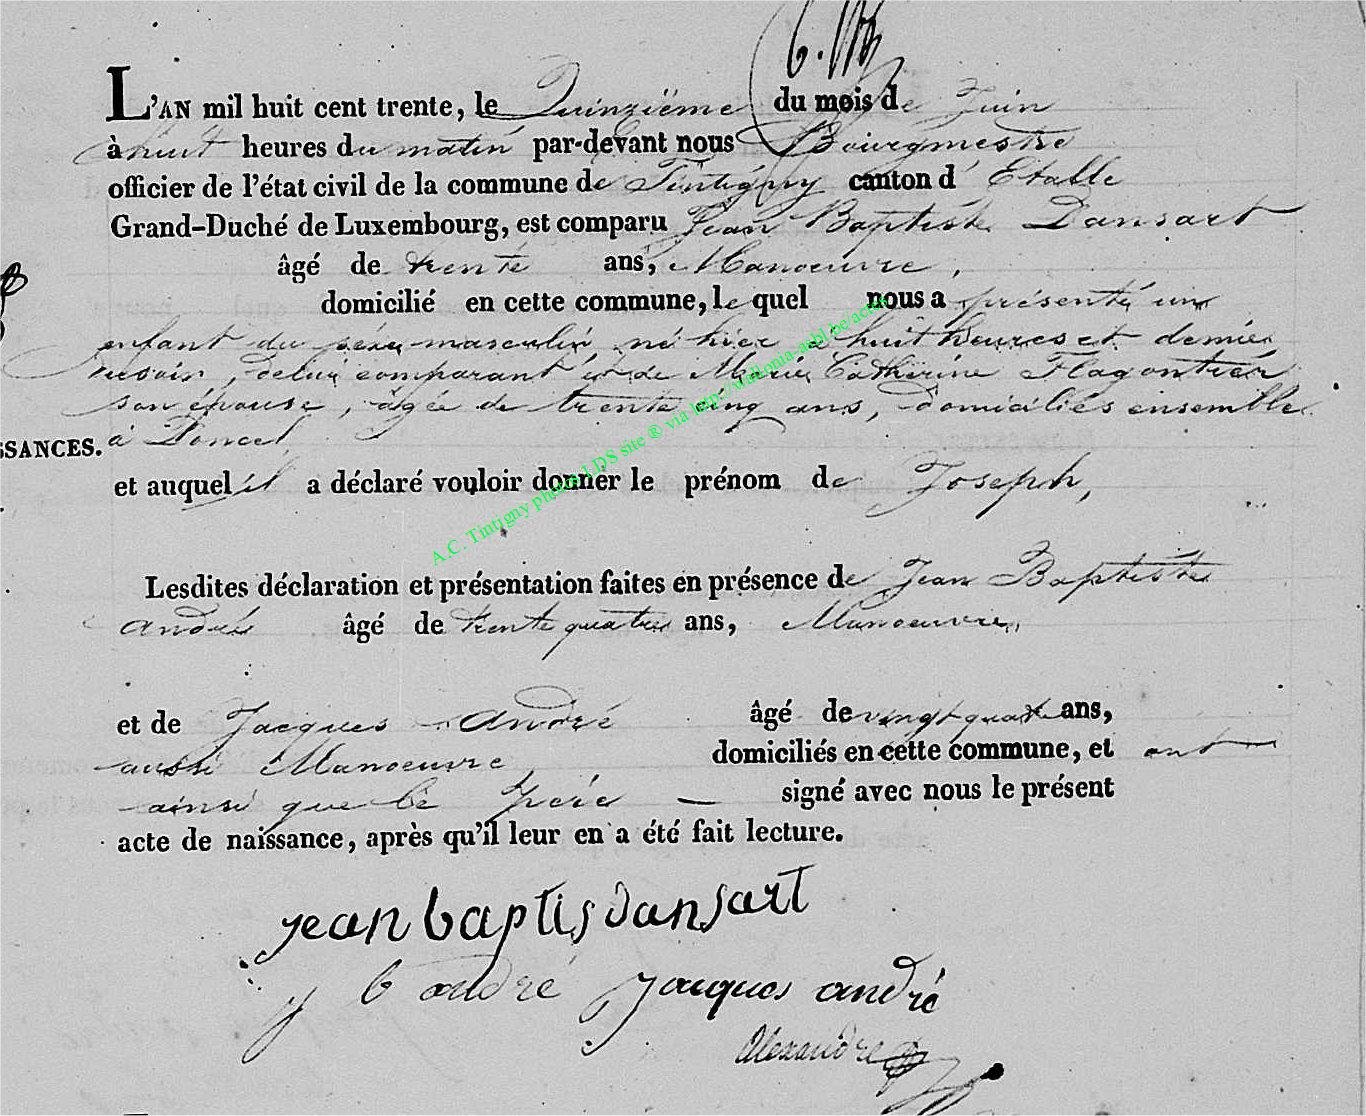 L'AN mil huit cent trente, le Quinzième du mois de Juin
à huit heures du matin par-devant nous Bourgmestre
officier de l'état civil de la commune de Tintigny canton d' Etalle
Grand-Duché de Luxembourg, est comparu Jean Baptiste Dansart
âgé de trente ans, Manoeuvre,
domicilié en cette commune, le quel nous a présenté un
enfant du sexe masculin né hier à huit heures et demie
du soir, de lui comparant et de Marie Catherine Flagontier
son épouse, âgée de trente cinq ans, domiciliés ensemble
SSANCES.
à Poncel
et auquel il a déclaré vouloir donner le prénom de Joseph,
Lesdites déclaration et présentation faites en présence de Jean Baptiste
André âgé de trente quatre ans, Manoeuvre,
et de Jacques André âgé de vingt quatre ans,
aussi Manoeuvre domiciliés en cette commune, et ont
ainsi que le père — signé avec nous le présent
acte de naissance, après qu'il leur en a été fait lecture.
jean baptis dansart
j b andré jacques andré
Alexandre
A.C. Tintigny photos LDS site ® via http://wallonia-asbl.be/actes